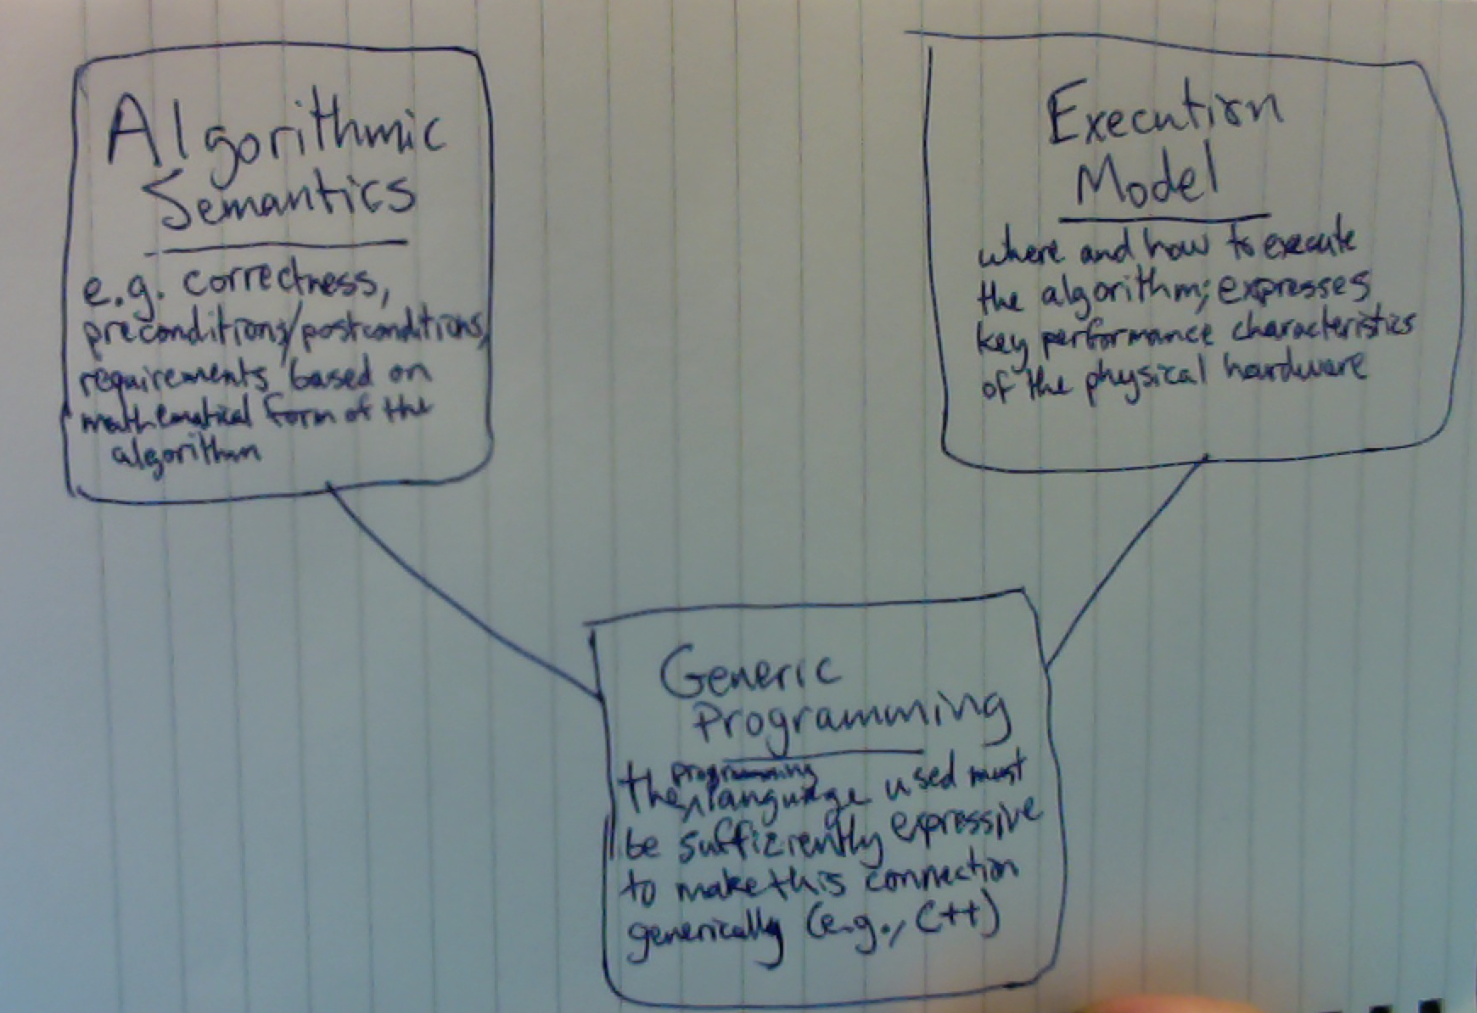 Algorithmic
Semantics
e.g. correctness,
preconditions/postconditions,
requirements based on
mathematical form of the
algorithm
Execution
Model
where and how to execute
the algorithm; expresses
key performance characteristics
of the physical hardware
Generic
Programming
the programming language used must
be sufficiently expressive
to make this connection
generically (e.g., C++)